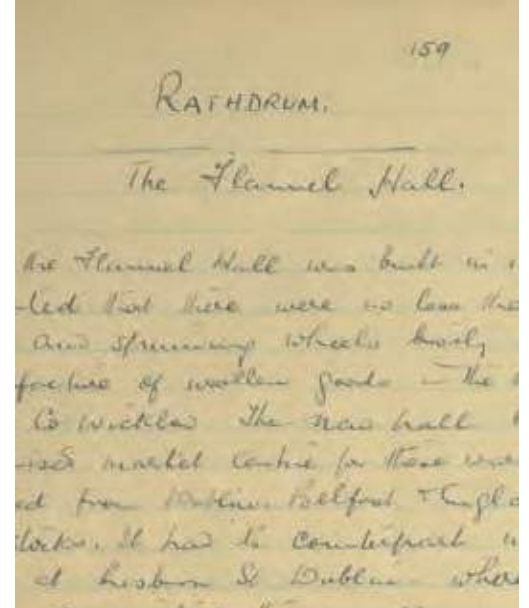 159
RATHDRUM.
The Flannel Hall.
the Flannel Hall was built in
-ted that there were no less the
and spinning wheels busily
facture of woollen goods – the
Co Wicklow The new hall
market centre for these
ed from Dublin, Belfast &
It had its counterpart
at Lisburn St Dublin where